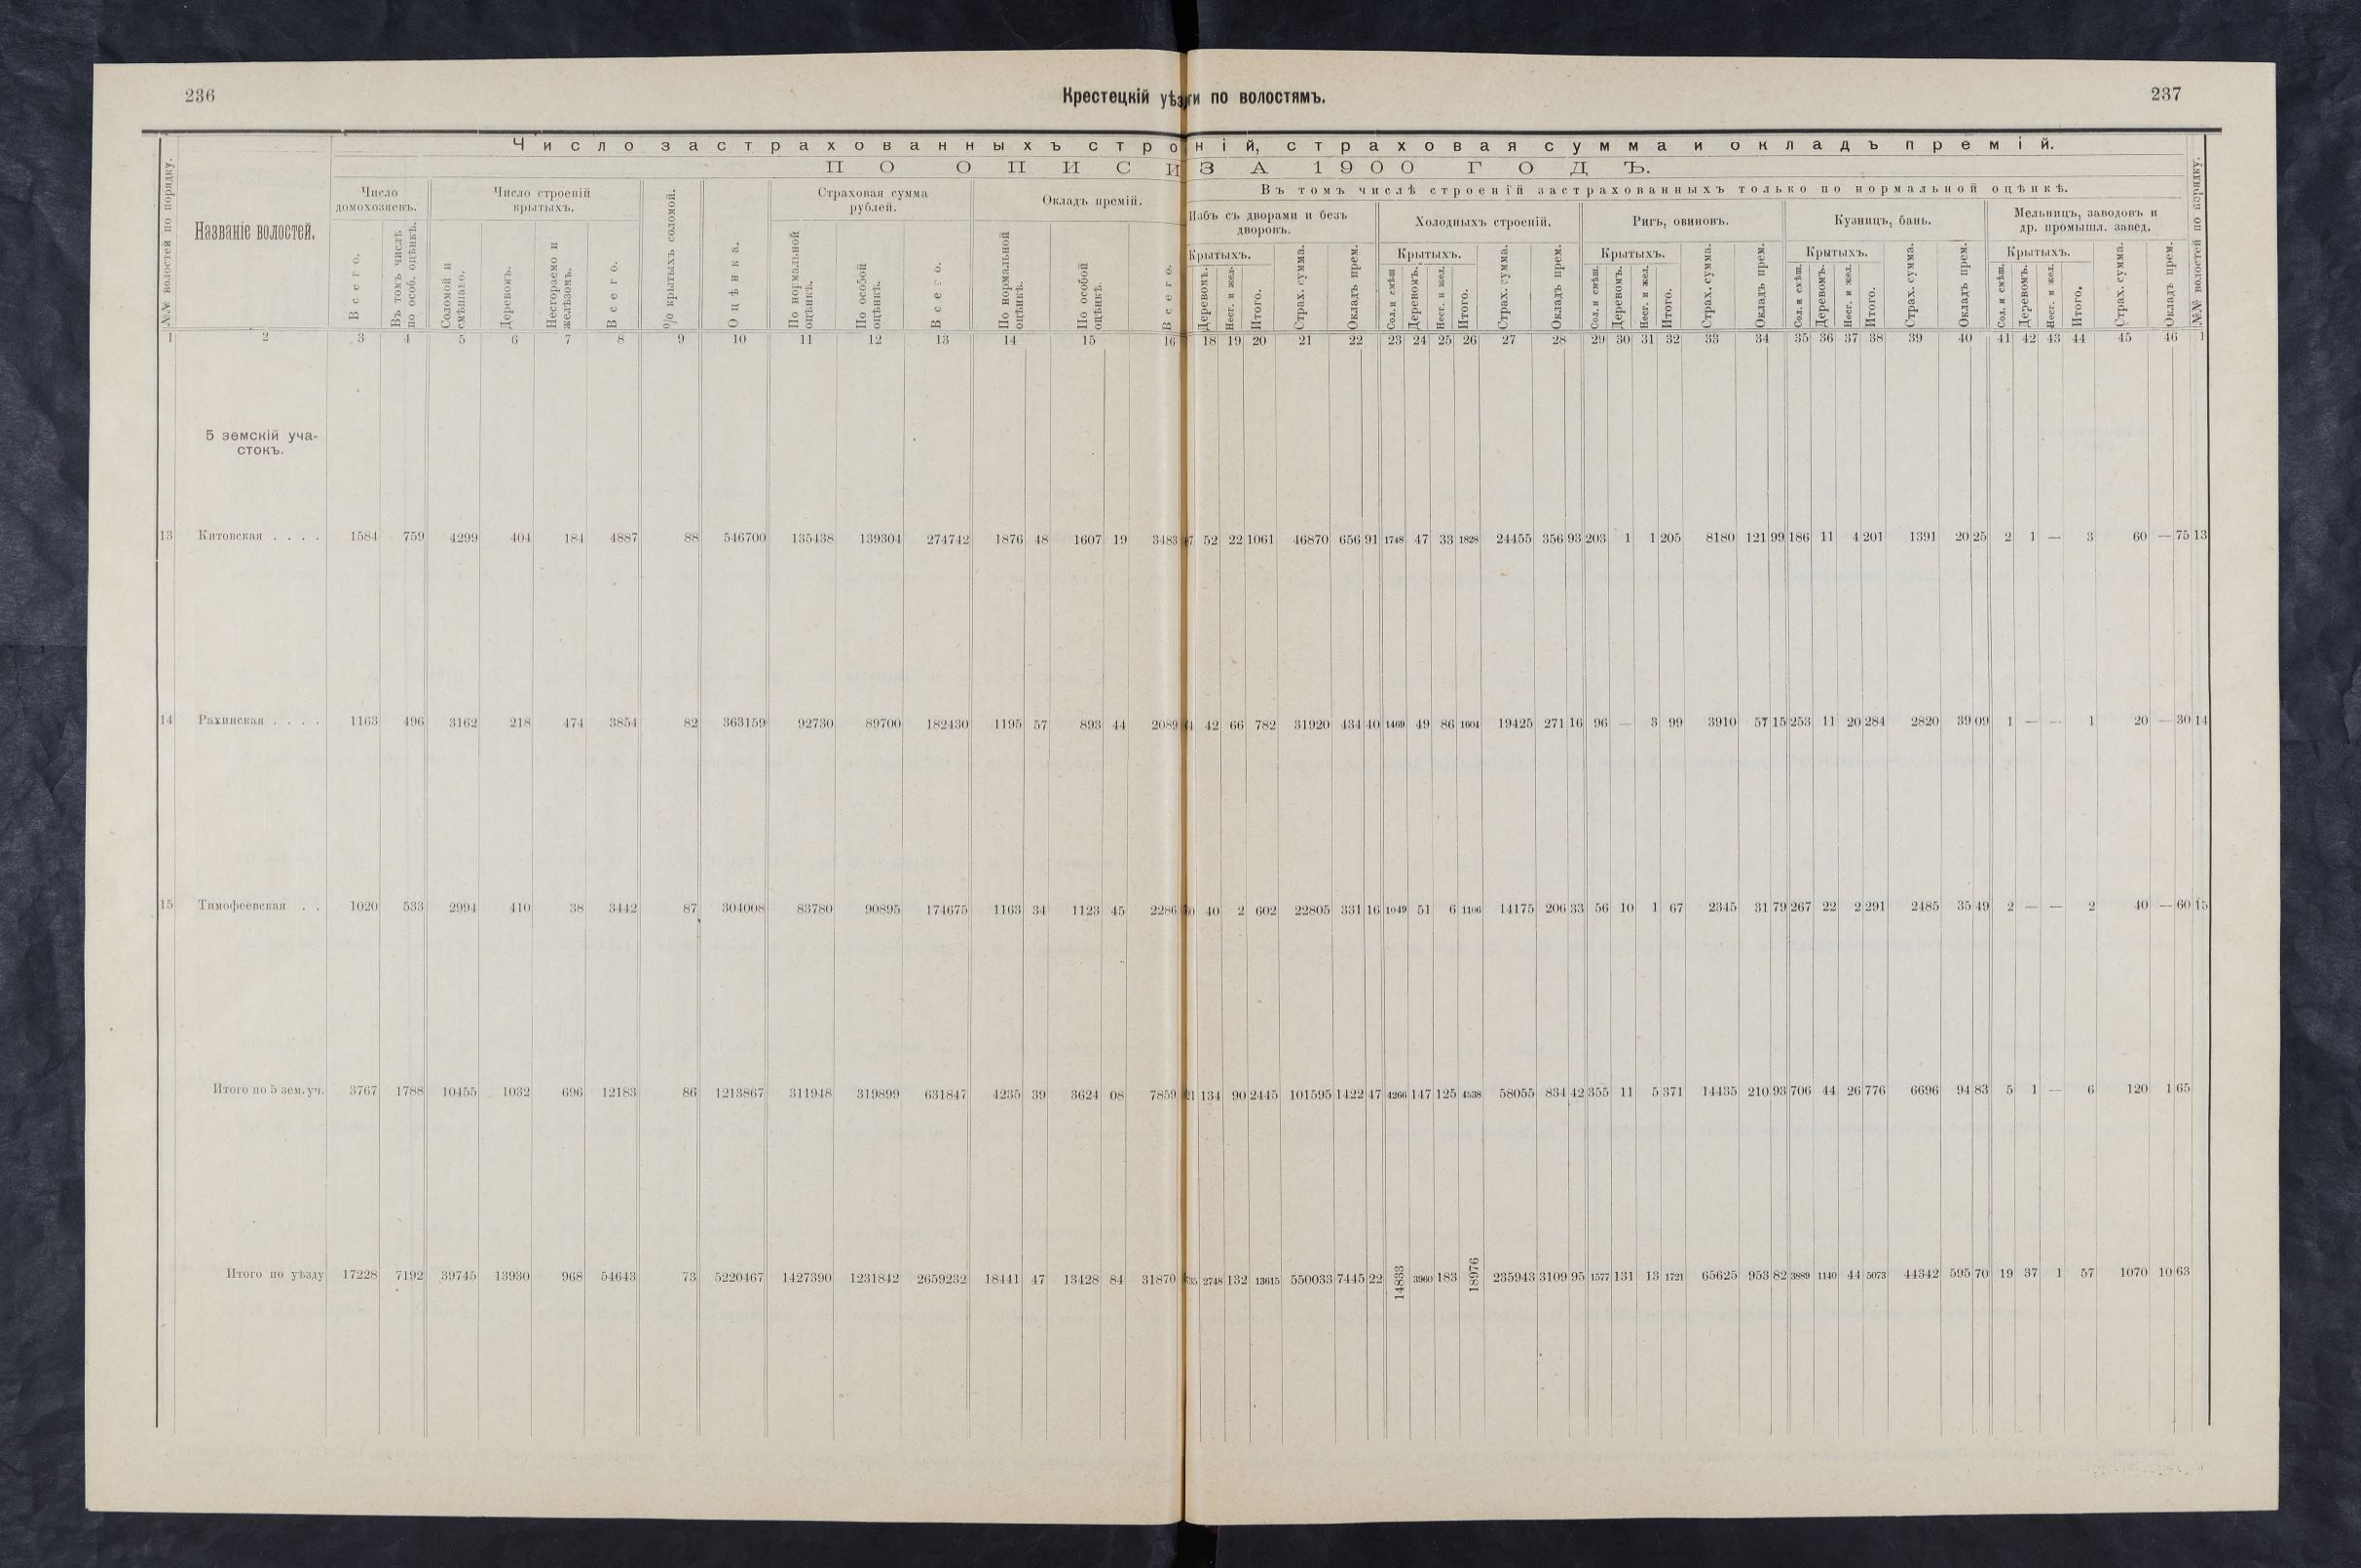 236
Крестецкій уѣз
ги по волостямъ.
237
Число застрахованныхъ стро
ній, страховая сумма и окладъ премій.
ПО ОПИСИ
ЗА 1900 ГОДЪ.
№№ волостей по порядку.
Названіе волостей.
Число домохозяевъ.
Число строеній крытыхъ.
% крытыхъ соломой.
Оцѣнка.
Страховая сумма рублей.
Окладъ премій.
Въ томъ числѣ строеній застрахованныхъ только по нормальной оцѣнкѣ.
Избъ съ дворами и безъ дворовъ.
Холодныхъ строеній.
Ригъ, овиновъ.
Кузницъ, бань.
Мельницъ, заводовъ и др. промышл. завед.
№№ волостей по порядку.
Всего.
Въ томъ числѣ по особ. оцѣнкѣ.
Соломой и смѣшано.
Деревомъ.
Несгораемо и желѣзомъ.
Всего.
По нормальной оцѣнкѣ.
По особой оцѣнкѣ.
Всего.
По нормальной оцѣнкѣ.
По особой оцѣнкѣ.
Всего.
Крытыхъ. Крытыхъ. Крытыхъ. Крытыхъ. Крытыхъ.
Деревомъ. Несг. и жел. Итого. Страх. сумма. Окладъ прем.
Сол. и смѣш. Деревомъ. Несг. и жел. Итого. Страх. сумма. Окладъ прем.
Сол. и смѣш. Деревомъ. Несг. и жел. Итого. Страх. сумма. Окладъ прем.
Сол. и смѣш. Деревомъ. Несг. и жел. Итого. Страх. сумма. Окладъ прем.
Сол. и смѣш. Деревомъ. Несг. и жел. Итого. Страх. сумма. Окладъ прем.
1 2 3 4 5 6 7 8 9 10 11 12 13 14 15 16 18 19 20 21 22 23 24 25 26 27 28 29 30 31 32 33 34 35 36 37 38 39 40 41 42 43 44 45 46 1
5 земскій уча-
стокъ.
13 Китовская . . . . 1584 759 4299 404 184 4887 88 546700 135438 139304 274742 1876 48 1607 19 3483 52 22 1061 46870 656 91 1748 47 33 1828 24455 356 93 203 1 1 205 8180 121 99 186 11 4 201 1391 20 25 2 1 — 3 60 — 75 13
14 Рахинская . . . . 1163 496 3162 218 474 3854 82 363159 92730 89700 182430 1195 57 893 44 2089 42 66 782 31920 434 40 1469 49 86 1604 19425 271 16 96 — 3 99 3910 57 15 253 11 20 284 2820 39 09 1 — — 1 20 — 30 14
15 Тимофеевская . . 1020 533 2994 410 38 3442 87 304008 83780 90895 174675 1163 34 1123 45 2286 40 2 602 22805 331 16 1049 51 6 1106 14175 206 33 56 10 1 67 2345 31 79 267 22 2 291 2485 35 49 2 — — 2 40 — 60 15
Итого по 5 зем. уч. 3767 1788 10455 1032 696 12183 86 1213867 311948 319899 631847 4235 39 3624 08 7859 134 90 2445 101595 1422 47 4266 147 125 4538 58055 834 42 355 11 5 371 14435 210 93 706 44 26 776 6696 94 83 5 1 — 6 120 1 65
Итого по уѣзду 17228 7192 39745 13930 968 54643 73 5220467 1427390 1231842 2659232 18441 47 13428 84 31870 2748 132 13615 550033 7445 22 14833 3960 183 18976 235943 3109 95 1577 131 13 1721 65625 953 82 3889 1140 44 5073 44342 595 70 19 37 1 57 1070 10 63